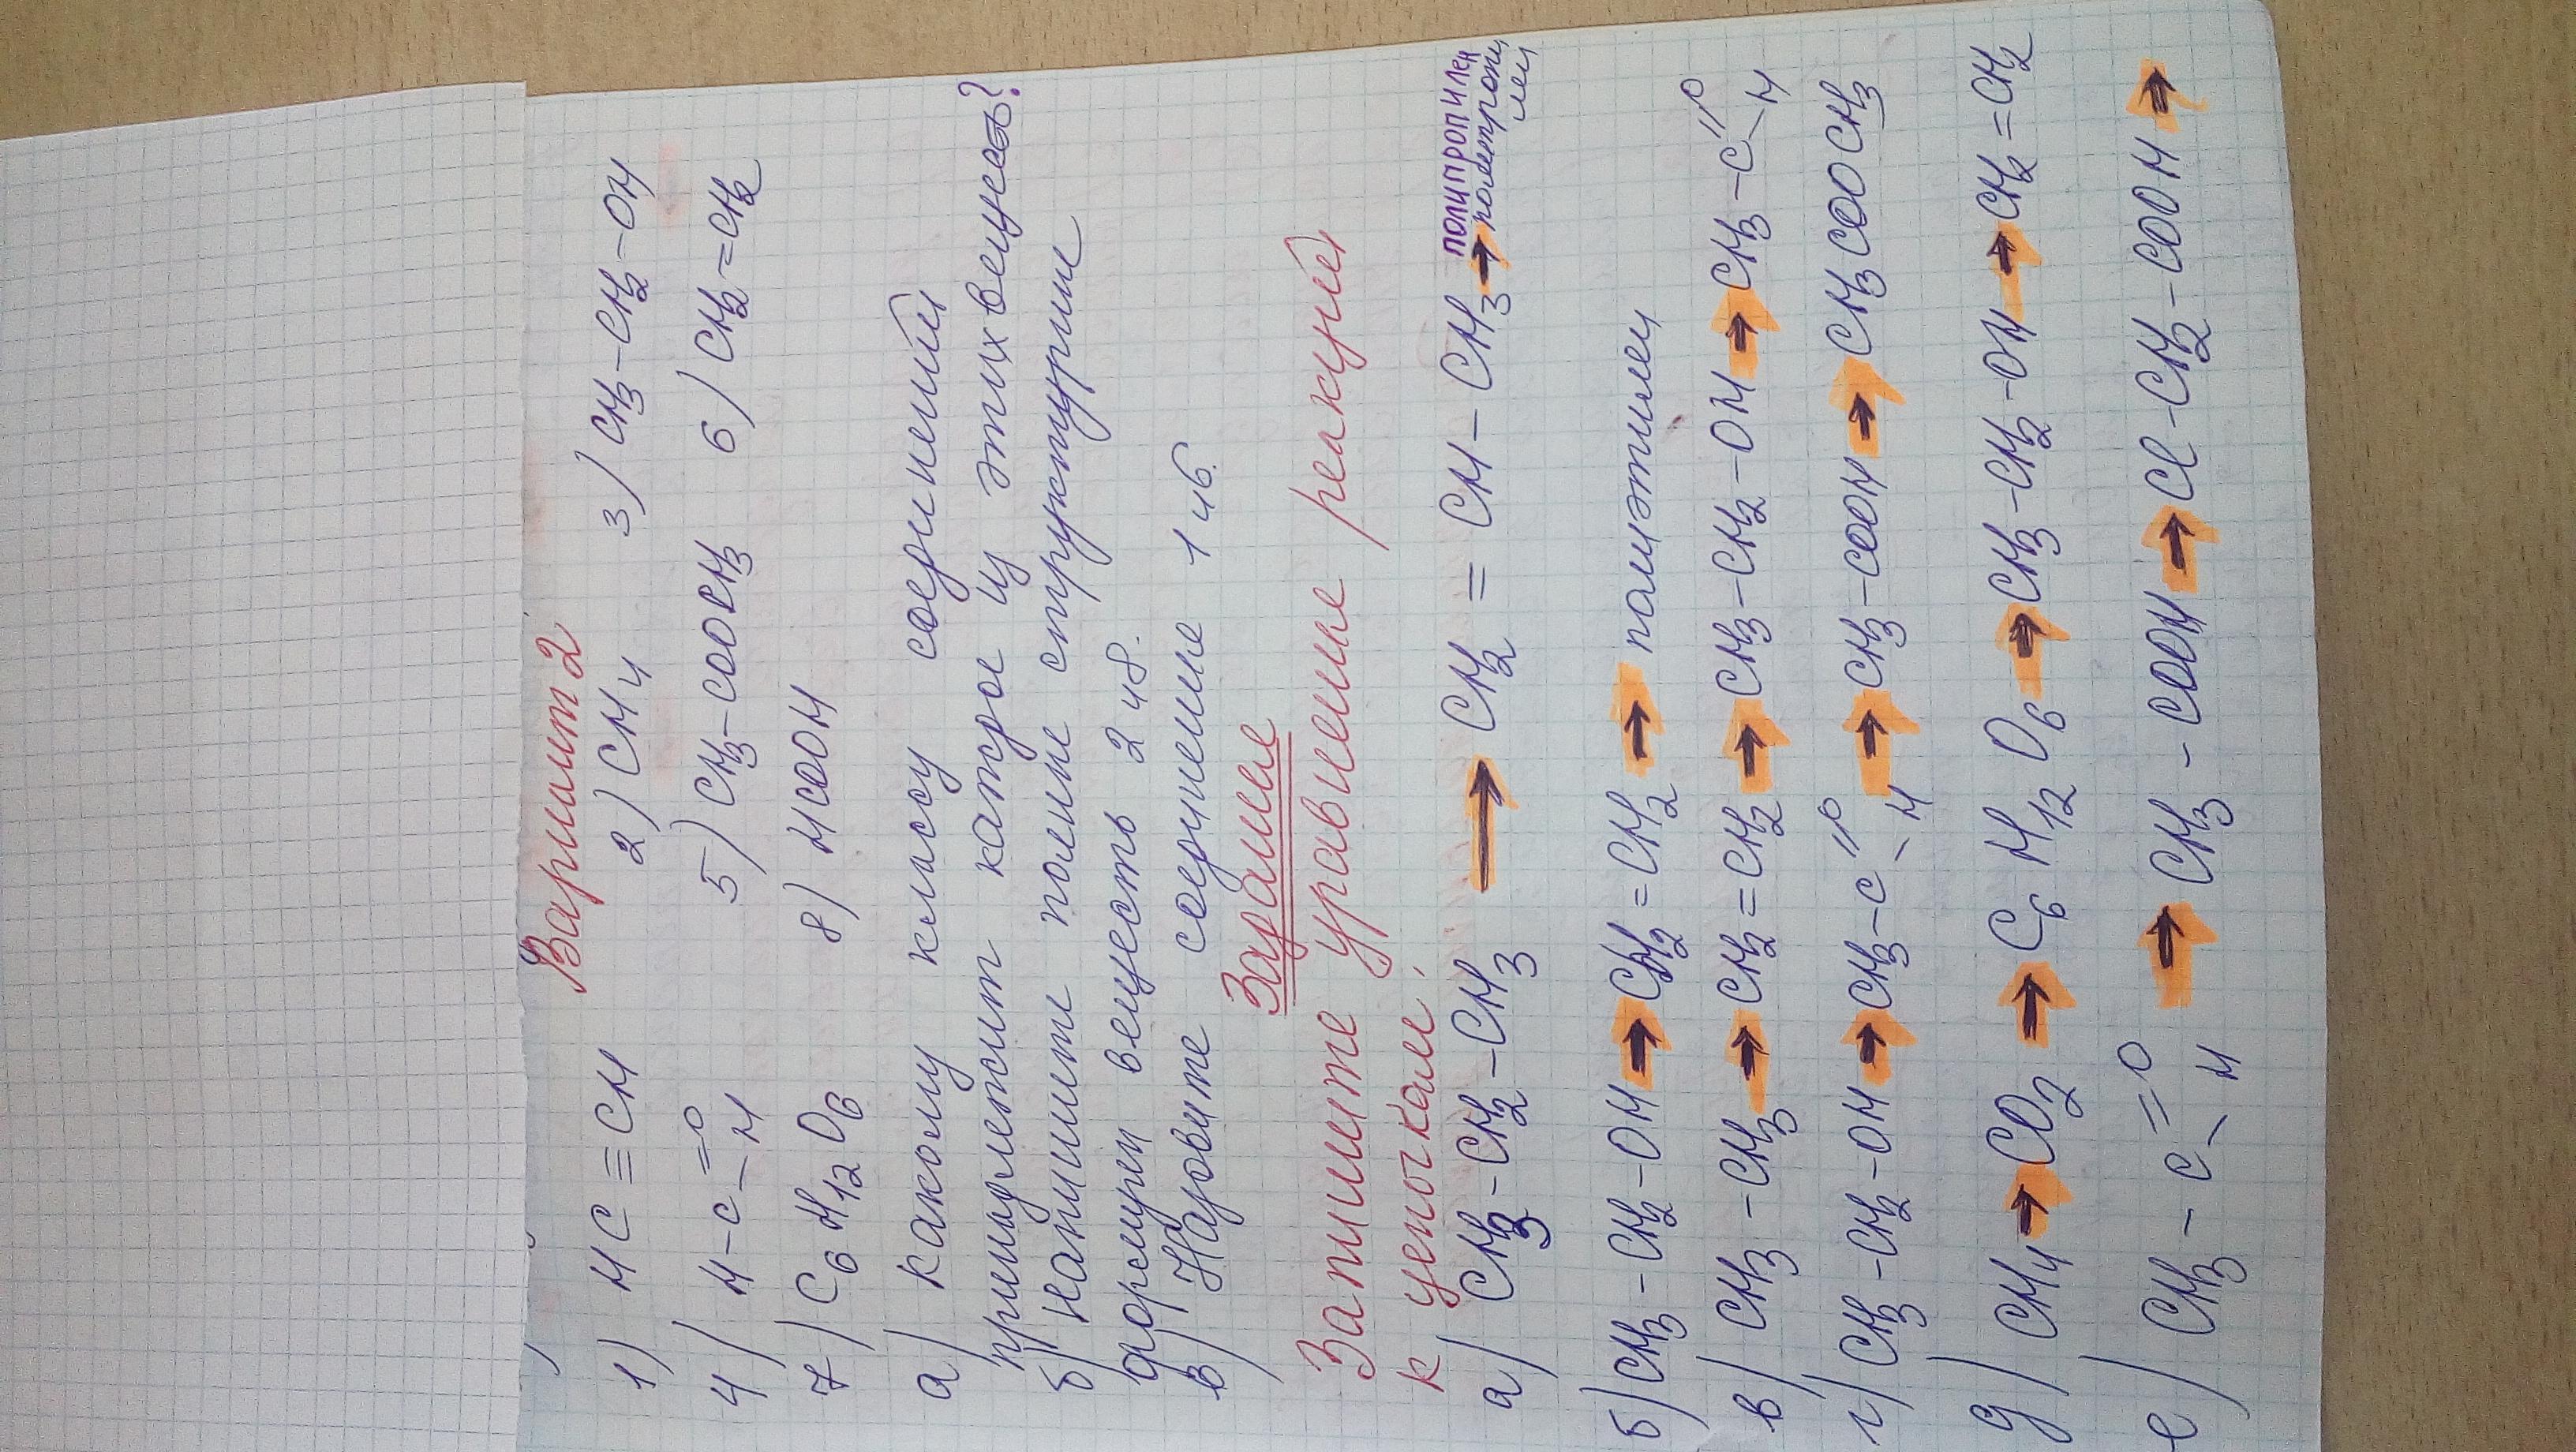 Вариант 2
1) HC≡CH 2) CH4 3) CH3-CH2-OH
4) H-C=O-H 5) CH3-COOCH3 6) CH2=CH2
7) C6H12O6 8) HCOOH
а) какому классу соединений
принадлежит каждое из этих веществ?
б) напишите полные структурные
формулы веществ 2 и 8.
в) Назовите соединение 1 и 6.
Задание
Запишите уравнение реакций
к цепочкам:
а) CH3-CH2-CH3 → CH2=CH-CH3 → полипропилен
полипропи
лен
б) CH3-CH2-OH → CH2=CH2 → полиэтилен
в) CH3-CH3 → CH2=CH2 → CH3-CH2-OH → CH3-C=O-H
г) CH3-CH2-OH → CH3-C=O-H → CH3-COOH → CH3COOCH3
д) CH4 → CO2 → C6H12O6 → CH3-CH2-OH → CH2=CH2
е) CH3-C=O-H → CH3-COOH → Cl-CH2-COOH →